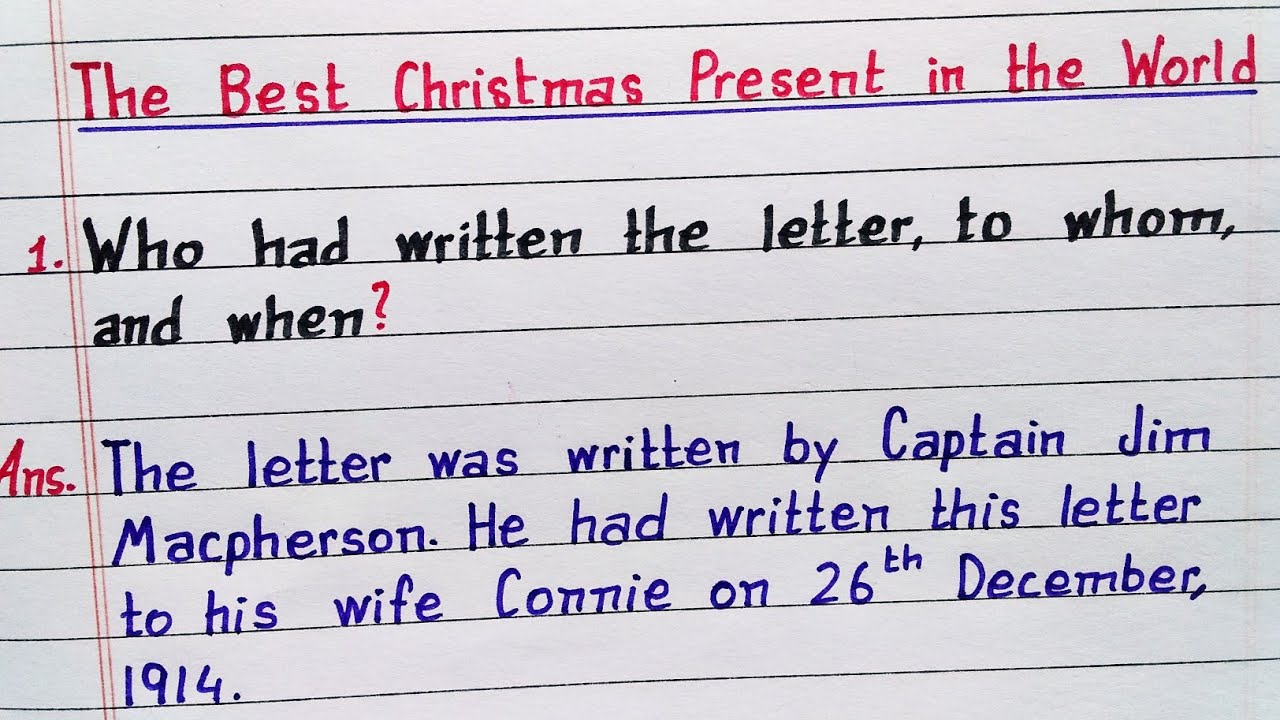 The Best Christmas Present in the World
1. Who had written the letter, to whom,
and when?
Ans. The letter was written by Captain Jim
Macpherson. He had written this letter
to his wife Connie on 26th December,
1914.